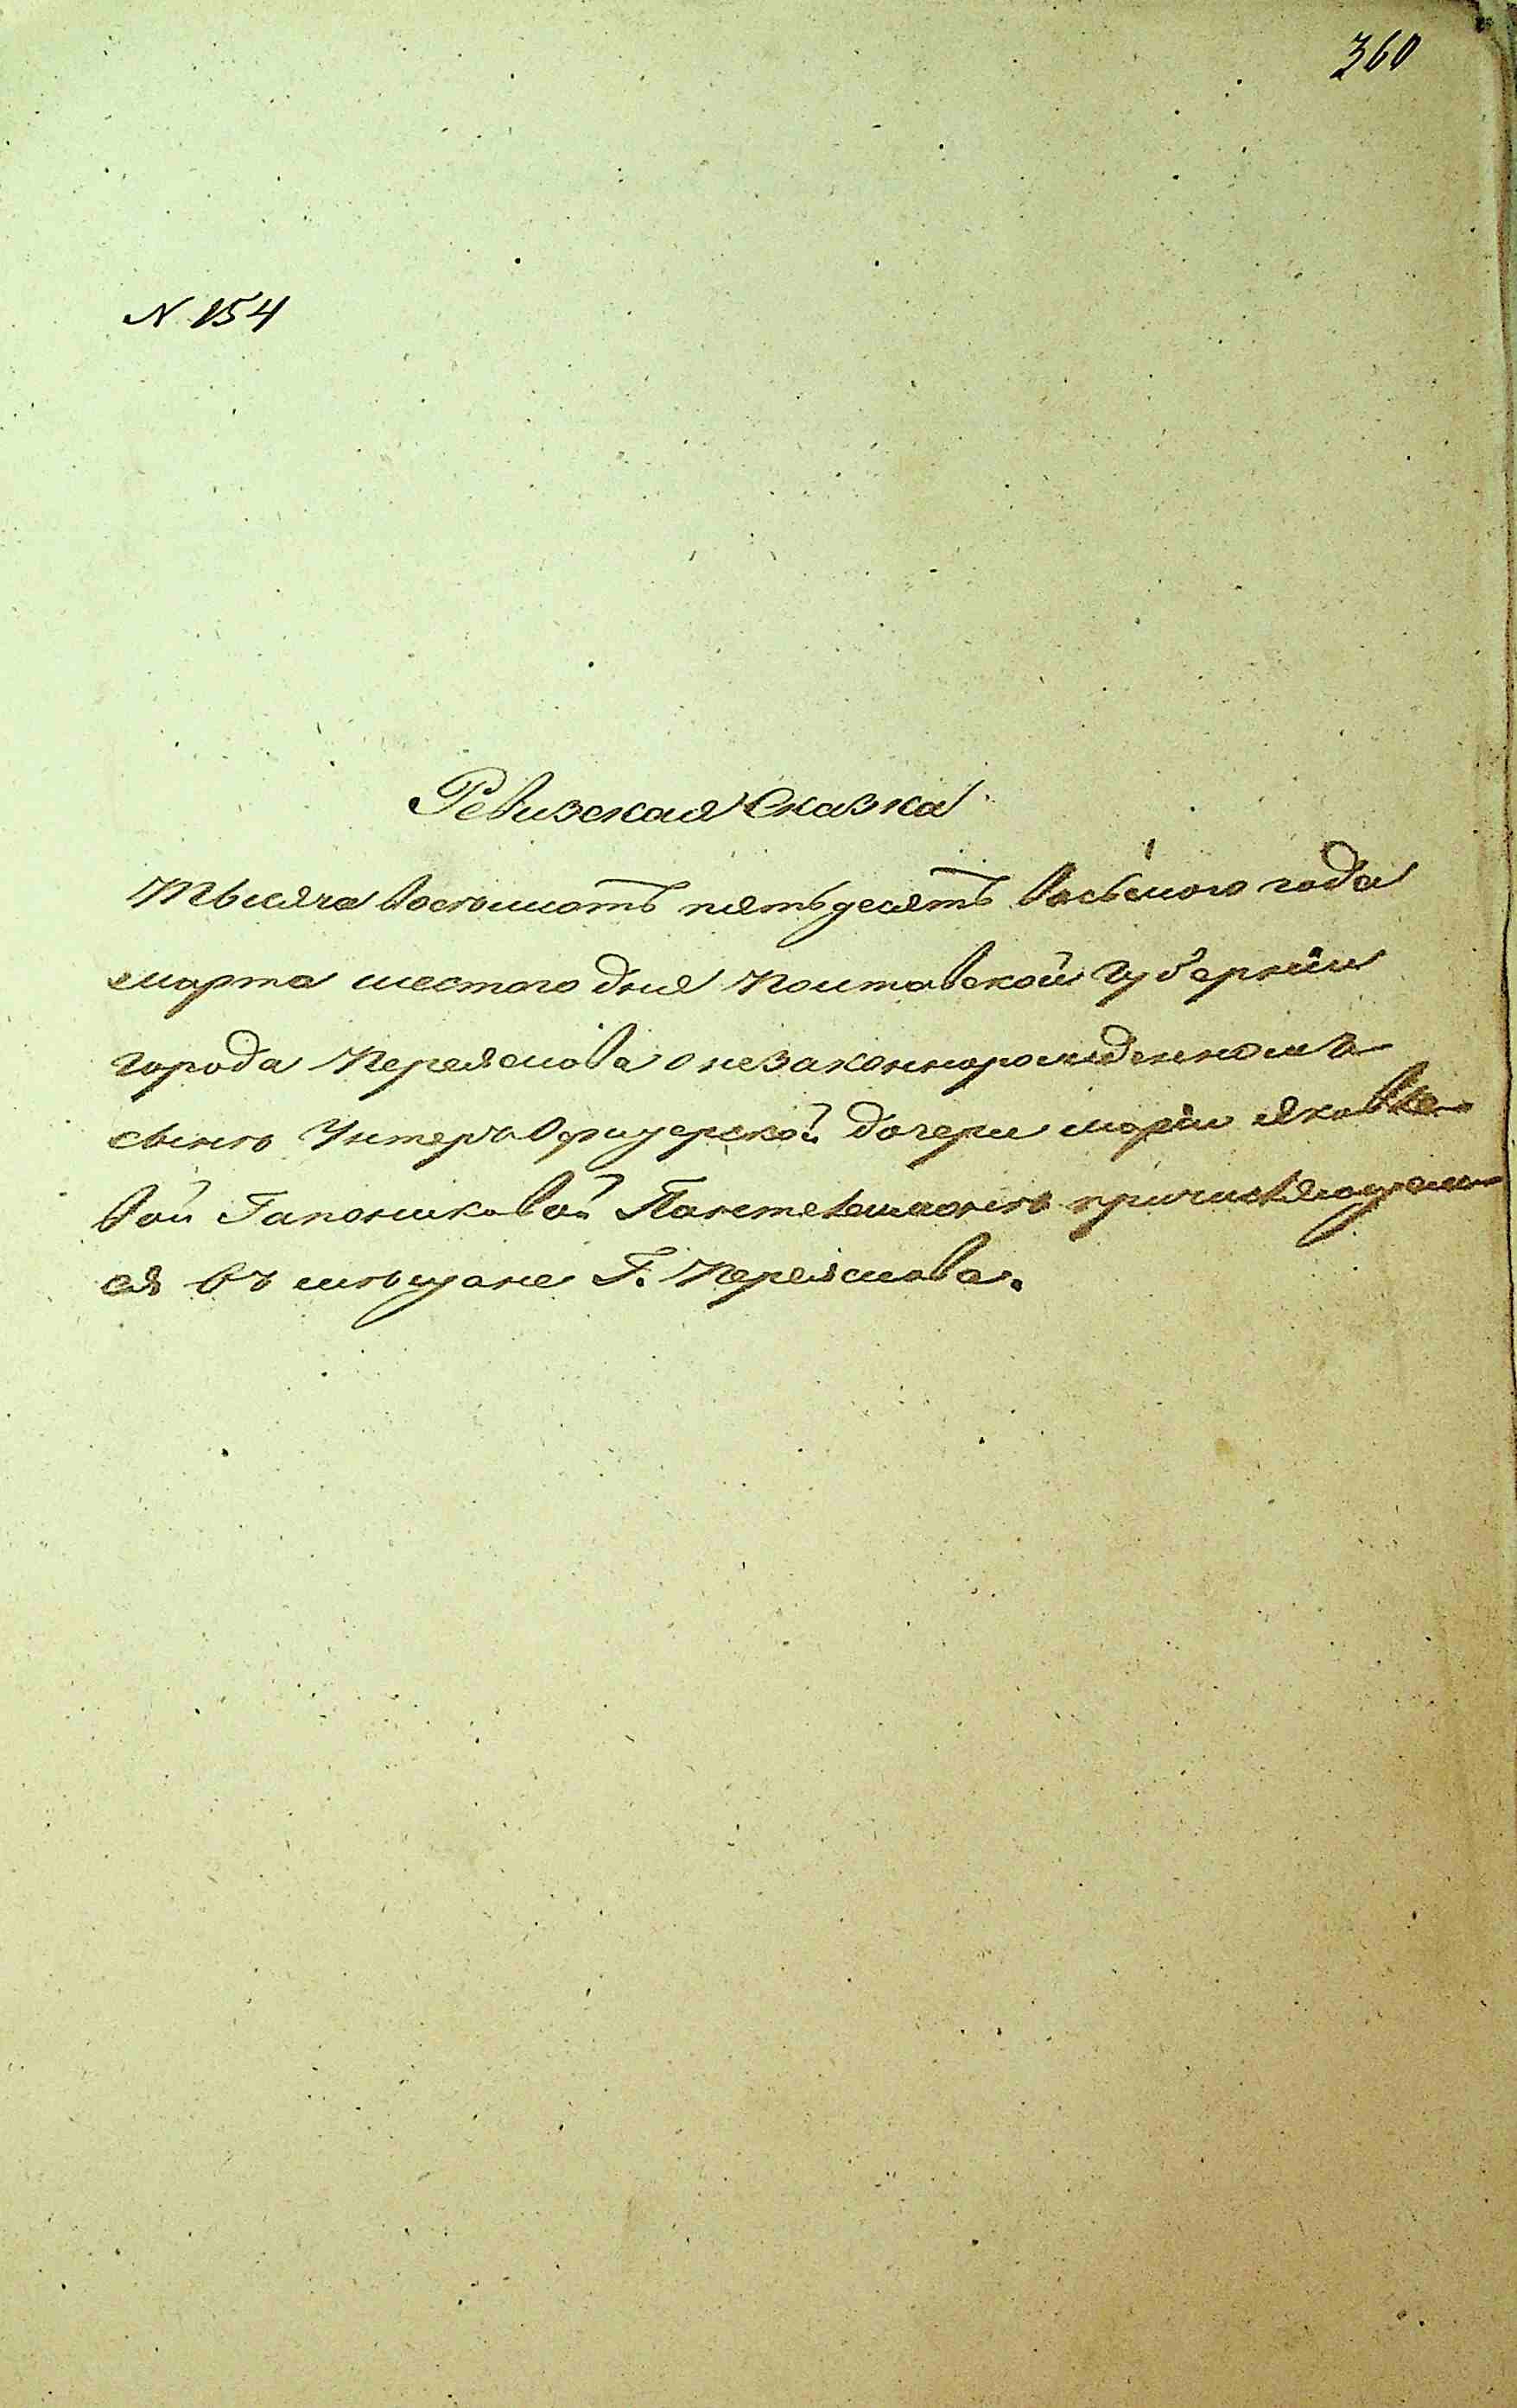 360
N 154
Ревизская Сказка
Тысяча восемьсотъ пятьдесятъ восьмого года
марта шестого дня Полтавской Губерніи
города Переяслова о незаконнорожденномъ
сынѣ Унтеръ Офицерской дочери Маріи Яковле-
вой Гапониковой Пантелеимонѣ причисляющем-
ся въ мѣщане Г. Переяслова.